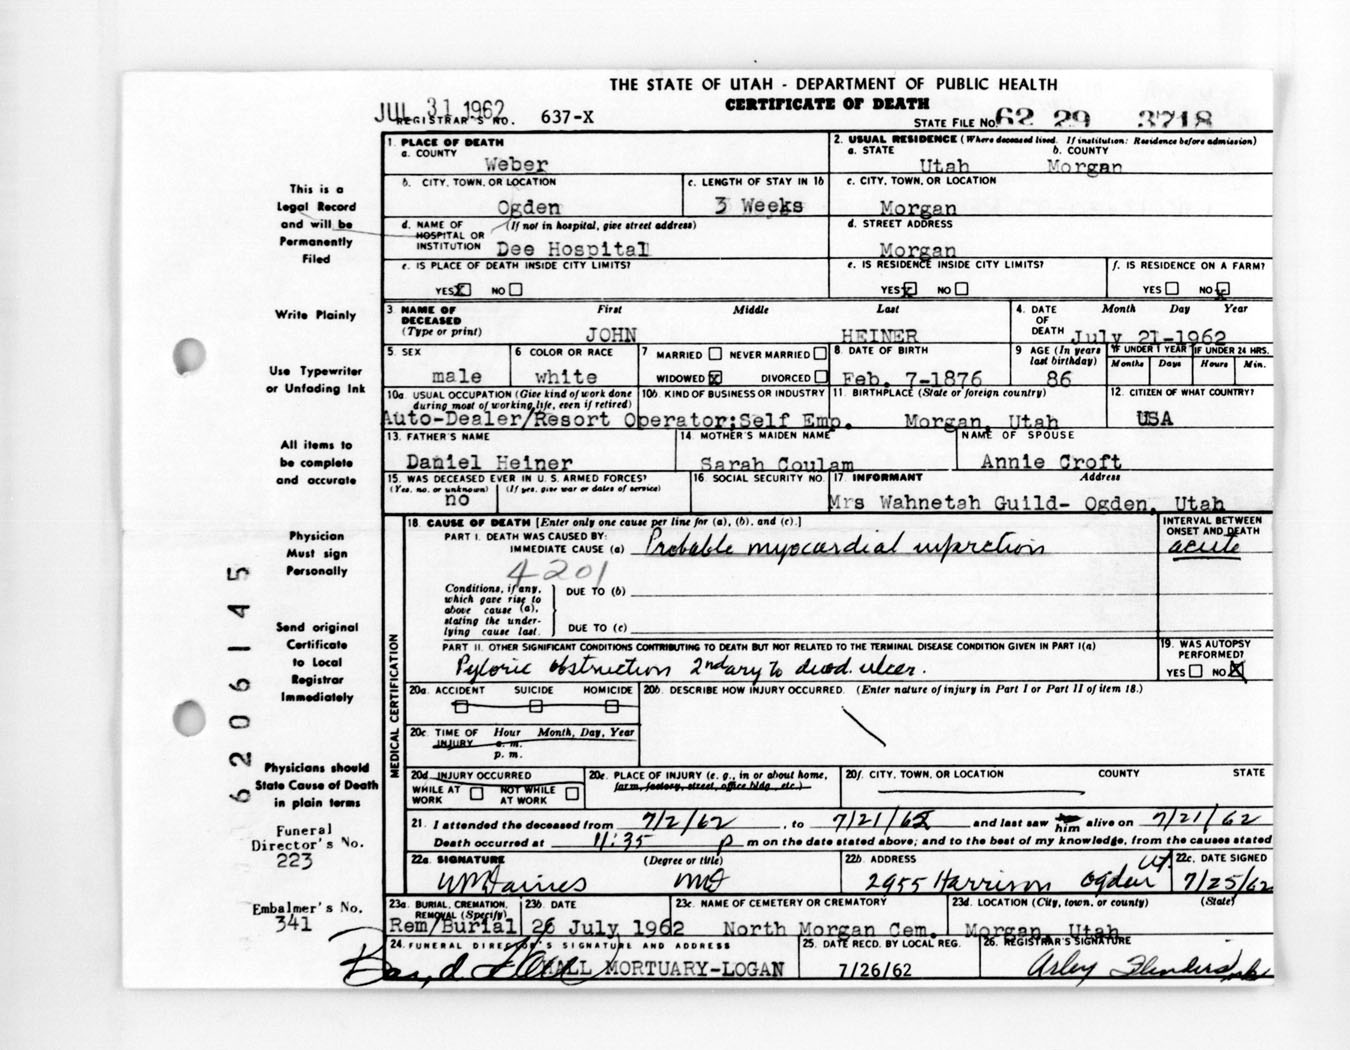 THE STATE OF UTAH - DEPARTMENT OF PUBLIC HEALTH
CERTIFICATE OF DEATH
JUL 31 1962
REGISTRAR'S NO. 637-X
STATE FILE NO. 62 29 3718
1. PLACE OF DEATH
a. COUNTY
Weber
2. USUAL RESIDENCE (Where deceased lived. If institution: Residence before admission)
a. STATE b. COUNTY
Utah Morgan
b. CITY, TOWN, OR LOCATION
Ogden
c. LENGTH OF STAY IN 1b
3 Weeks
c. CITY, TOWN, OR LOCATION
Morgan
d. NAME OF (If not in hospital, give street address)
HOSPITAL OR
INSTITUTION Dee Hospital
d. STREET ADDRESS
Morgan
e. IS PLACE OF DEATH INSIDE CITY LIMITS?
YES X NO
e. IS RESIDENCE INSIDE CITY LIMITS?
YES X NO
f. IS RESIDENCE ON A FARM?
YES NO X
3. NAME OF DECEASED (Type or print)
First Middle Last
JOHN HEINER
4. DATE OF DEATH
Month Day Year
July 21-1962
5. SEX
male
6 COLOR OR RACE
white
7 MARRIED NEVER MARRIED
WIDOWED X DIVORCED
8. DATE OF BIRTH
Feb. 7-1876
9 AGE (In years last birthday)
86
IF UNDER 1 YEAR IF UNDER 24 HRS.
Months Days Hours Min.
10a. USUAL OCCUPATION (Give kind of work done during most of working life, even if retired)
10b. KIND OF BUSINESS OR INDUSTRY
Auto-Dealer/Resort Operator;Self Emp.
11. BIRTHPLACE (State or foreign country)
Morgan, Utah
12. CITIZEN OF WHAT COUNTRY?
USA
13. FATHER'S NAME
Daniel Heiner
14. MOTHER'S MAIDEN NAME
Sarah Coulam
NAME OF SPOUSE
Annie Croft
15. WAS DECEASED EVER IN U. S. ARMED FORCES?
(Yes, no, or unknown) (If yes, give war or dates of service)
no
16. SOCIAL SECURITY NO.
17. INFORMANT Address
Mrs Wahnetah Guild- Ogden, Utah
MEDICAL CERTIFICATION
18. CAUSE OF DEATH [Enter only one cause per line for (a), (b), and (c).]
PART I. DEATH WAS CAUSED BY:
IMMEDIATE CAUSE (a) Probable myocardial infarction
INTERVAL BETWEEN ONSET AND DEATH
acute
4201
Conditions, if any,
which gave rise to
above cause (a),
stating the under-
lying cause last.
DUE TO (b)
DUE TO (c)
PART II. OTHER SIGNIFICANT CONDITIONS CONTRIBUTING TO DEATH BUT NOT RELATED TO THE TERMINAL DISEASE CONDITION GIVEN IN PART I(a)
Pyloric obstruction 2ndary to duod. ulcer.
19. WAS AUTOPSY PERFORMED?
YES NO X
20a. ACCIDENT SUICIDE HOMICIDE
20b. DESCRIBE HOW INJURY OCCURRED. (Enter nature of injury in Part I or Part II of item 18.)
20c. TIME OF INJURY Hour Month, Day, Year
a. m.
p. m.
20d. INJURY OCCURRED
WHILE AT WORK NOT WHILE AT WORK
20e. PLACE OF INJURY (e. g., in or about home,
farm, factory, street, office bldg., etc.)
20f. CITY, TOWN, OR LOCATION COUNTY STATE
21. I attended the deceased from 7/2/62, to 7/21/62 and last saw him alive on 7/21/62
Death occurred at 11:35 p m on the date stated above; and to the best of my knowledge, from the causes stated
22a. SIGNATURE (Degree or title)
MD
22b. ADDRESS
2955 Harrison Ogden Ut.
22c. DATE SIGNED
7/25/62
23a. BURIAL, CREMATION, REMOVAL (Specify)
Rem/Burial
23b. DATE
26 July 1962
23c. NAME OF CEMETERY OR CREMATORY
North Morgan Cem.
23d. LOCATION (City, town, or county) (State)
Morgan, Utah
24. FUNERAL DIRECTOR'S SIGNATURE AND ADDRESS
HALL MORTUARY-LOGAN
25. DATE RECD. BY LOCAL REG.
7/26/62
26. REGISTRAR'S SIGNATURE
This is a
Legal Record
and will be
Permanently
Filed
Write Plainly
Use Typewriter
or Unfading Ink
All items to
be complete
and accurate
Physician
Must sign
Personally
Send original
Certificate
to Local
Registrar
Immediately
Physicians should
State Cause of Death
in plain terms
Funeral
Director's No.
223
Embalmer's No.
341
6206145